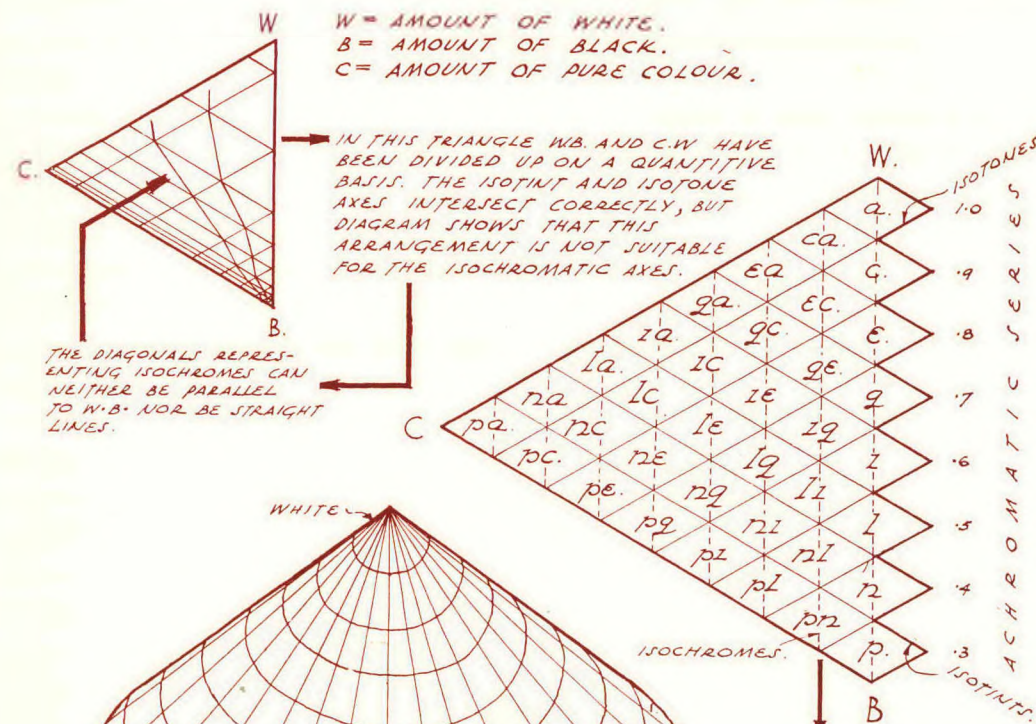 W
W = AMOUNT OF WHITE.
B = AMOUNT OF BLACK.
C = AMOUNT OF PURE COLOUR.
C.
B.
IN THIS TRIANGLE W.B. AND C.W HAVE
BEEN DIVIDED UP ON A QUANTITIVE
BASIS. THE ISOTINT AND ISOTONE
AXES INTERSECT CORRECTLY, BUT
DIAGRAM SHOWS THAT THIS
ARRANGEMENT IS NOT SUITABLE
FOR THE ISOCHROMATIC AXES.
THE DIAGONALS REPRES-
ENTING ISOCHROMES CAN
NEITHER BE PARALLEL
TO W·B· NOR BE STRAIGHT
LINES.
W.
ISOTONES
a. 1.0
ca.
ea c. .9
ga ec.
ia gc ε. .8
la ic gε.
na lc iε g .7
C pa. nc lε ig
pc. nε lg i .6
pε. ng li
pg ni l .5
pi nl
pl n .4
pn
p. .3
ISOCHROMES.
ISOTINTS.
B
ACHROMATIC SERIES
WHITE